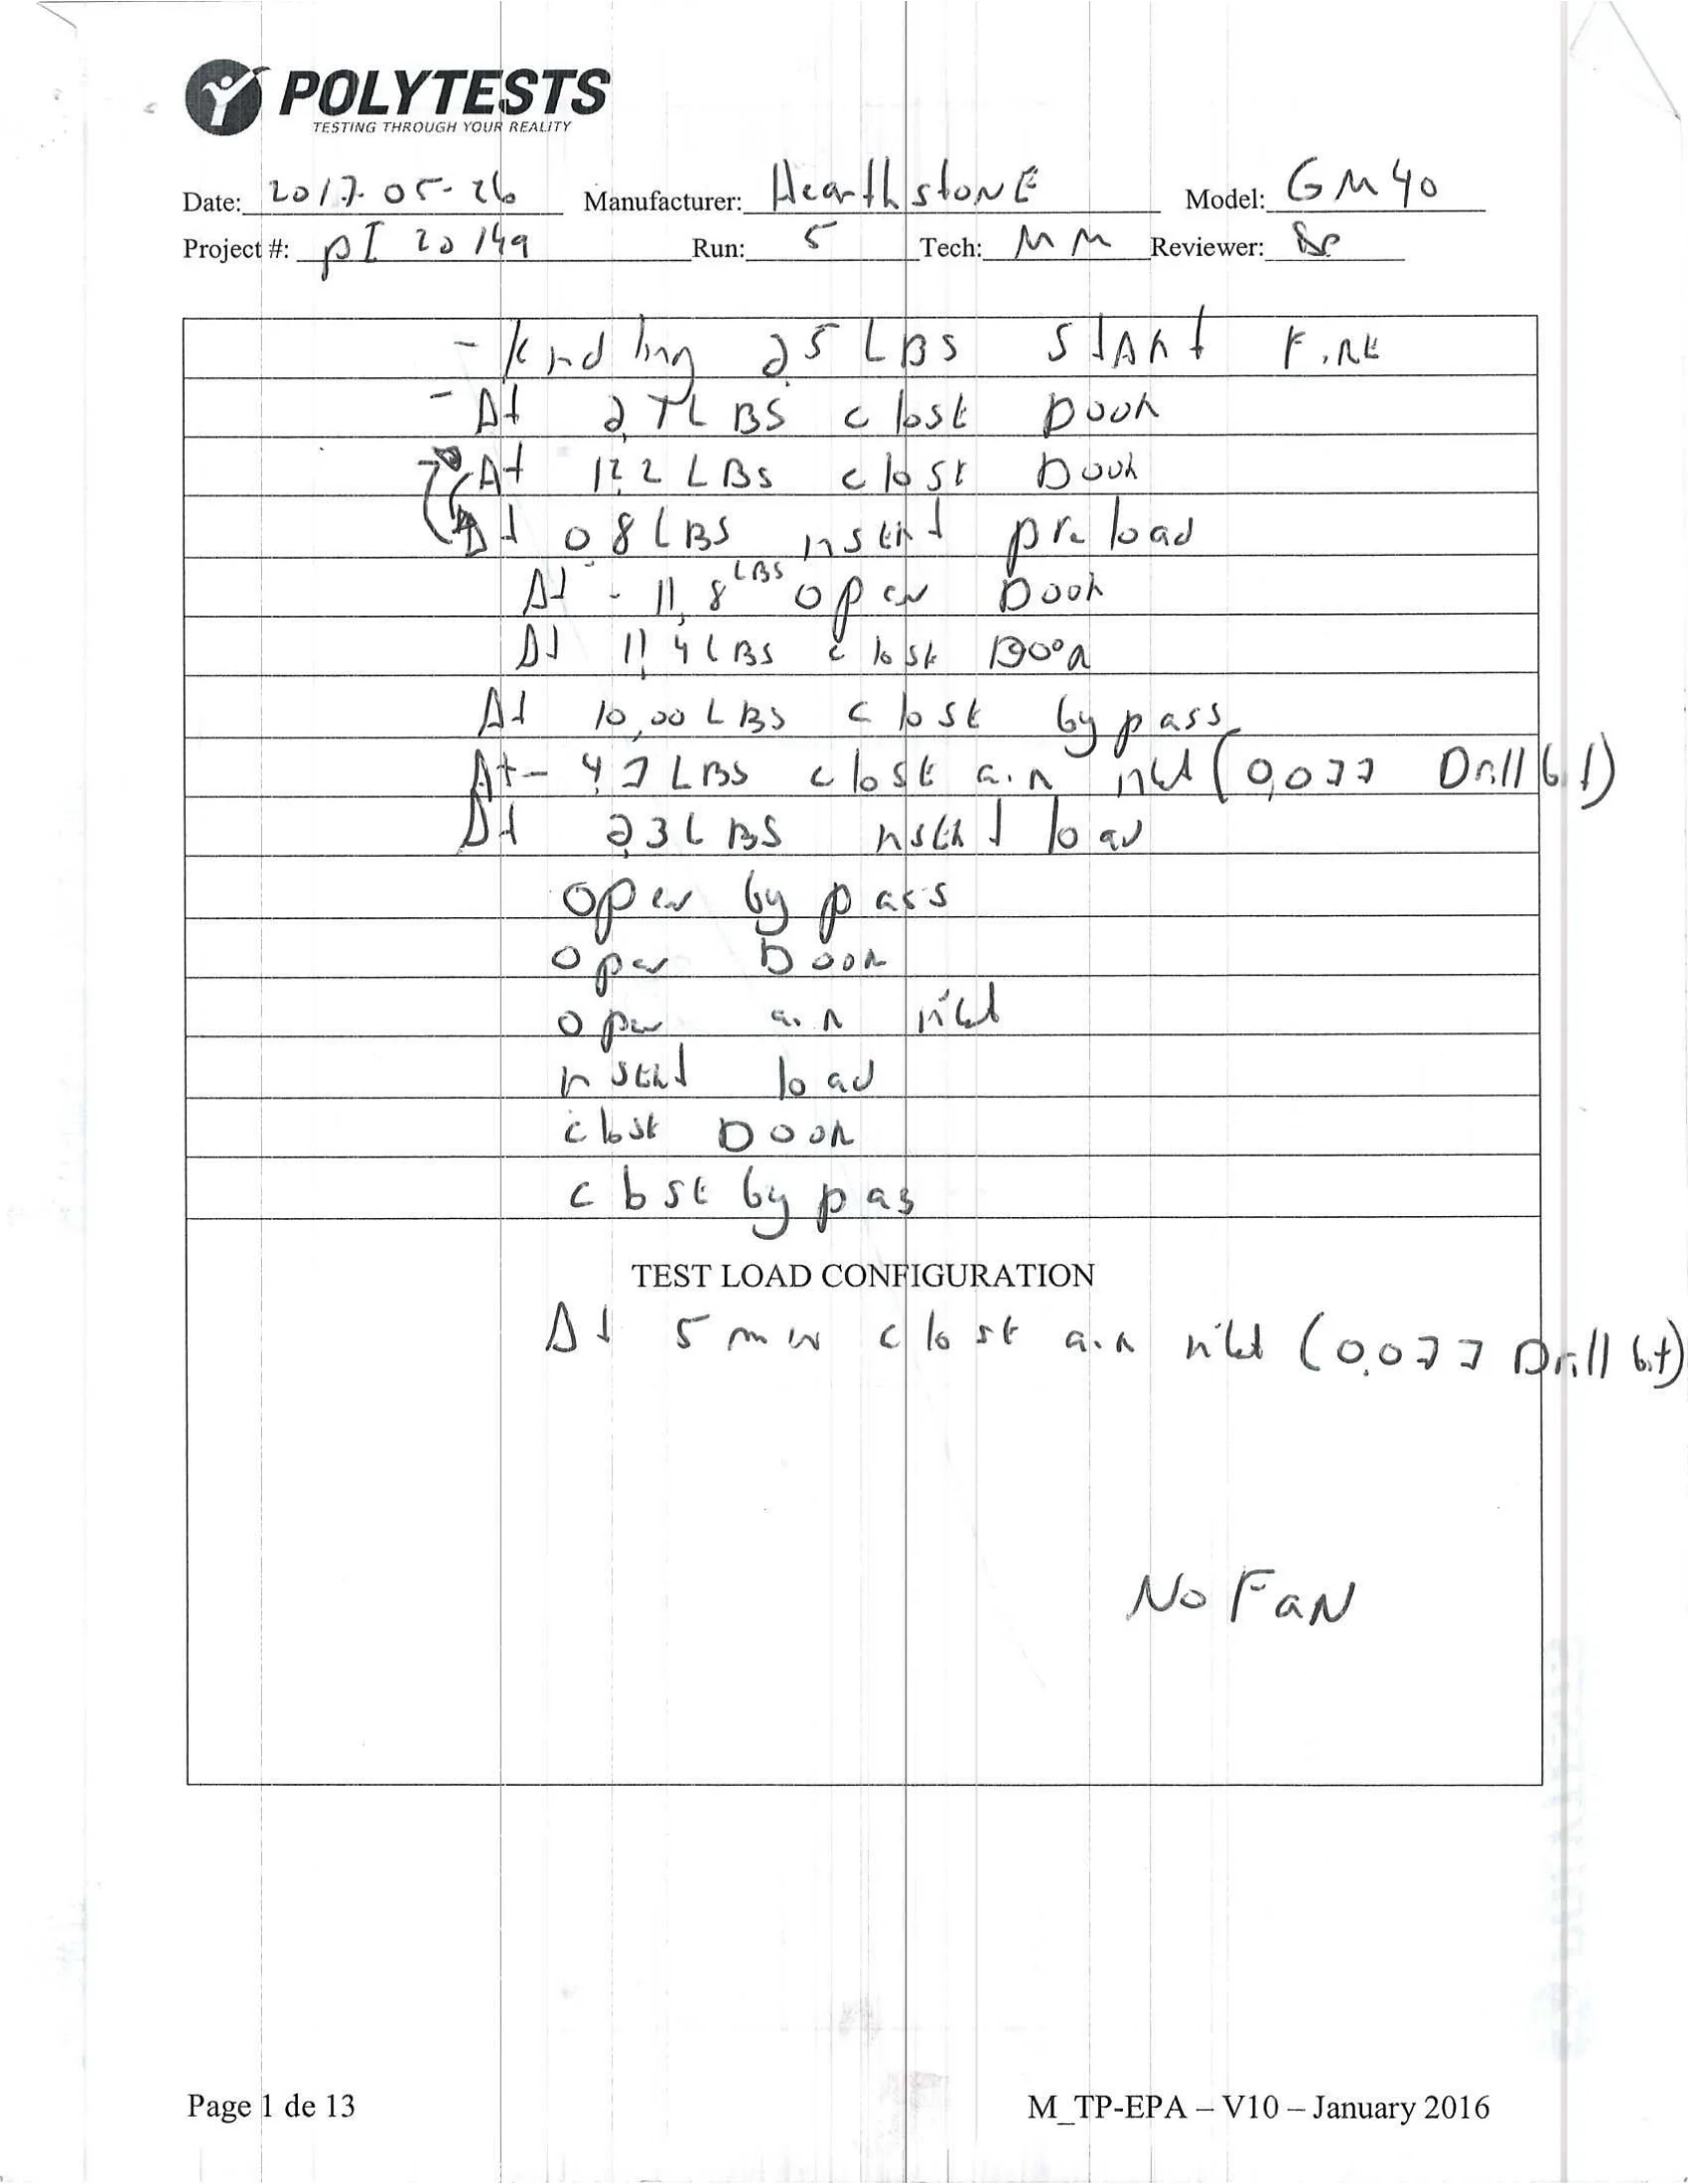 POLYTESTS
TESTING THROUGH YOUR REALITY
Date: 2017-05-26 Manufacturer: HearthstoNE Model: GM40
Project #: pI 20149 Run: 5 Tech: MM Reviewer:
- kindling 2,5 LBS START FiRE
- At 2,7 LBS close Door
At 12,2 LBS close Door
At 0,8 LBS insert pre load
At - 11,8 LBS open Door
At 11,4 LBS close Door
At 10,00 LBS close by pass
At - 4,7 LBS close air inlet (0,077 Drill bit)
At 2,3 LBS insert load
open by pass
open Door
open air inlet
insert load
close Door
close by pas
TEST LOAD CONFIGURATION
At 5 min close air inlet (0,077 Drill bit)
No FaN
Page 1 de 13 M_TP-EPA – V10 – January 2016